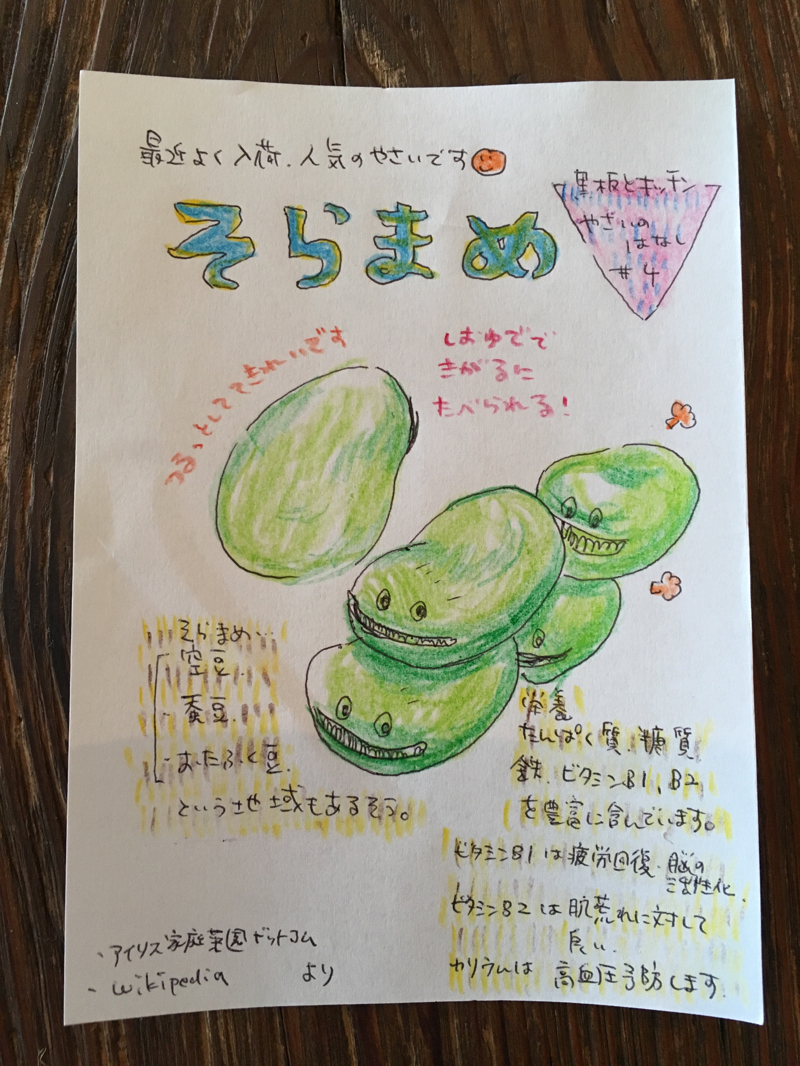 最近よく入荷、人気のやさいです
そらまめ
黒板とキッチン
やさいの
はなし
#4
つるっとしててきれいです
しおゆでで
きがるに
たべられる!
そらまめ…
空豆
蚕豆
おたふく豆
という地域もあるそう。
栄養
たんぱく質、糖質
鉄、ビタミンB1、B2
を豊富に含んでいます。
ビタミンB1は疲労回復、脳の
活性化、
ビタミンB2は肌荒れに対して
良い、
カリウムは 高血圧予防します。
・アイリス家庭菜園ドットコム
・wikipedia より